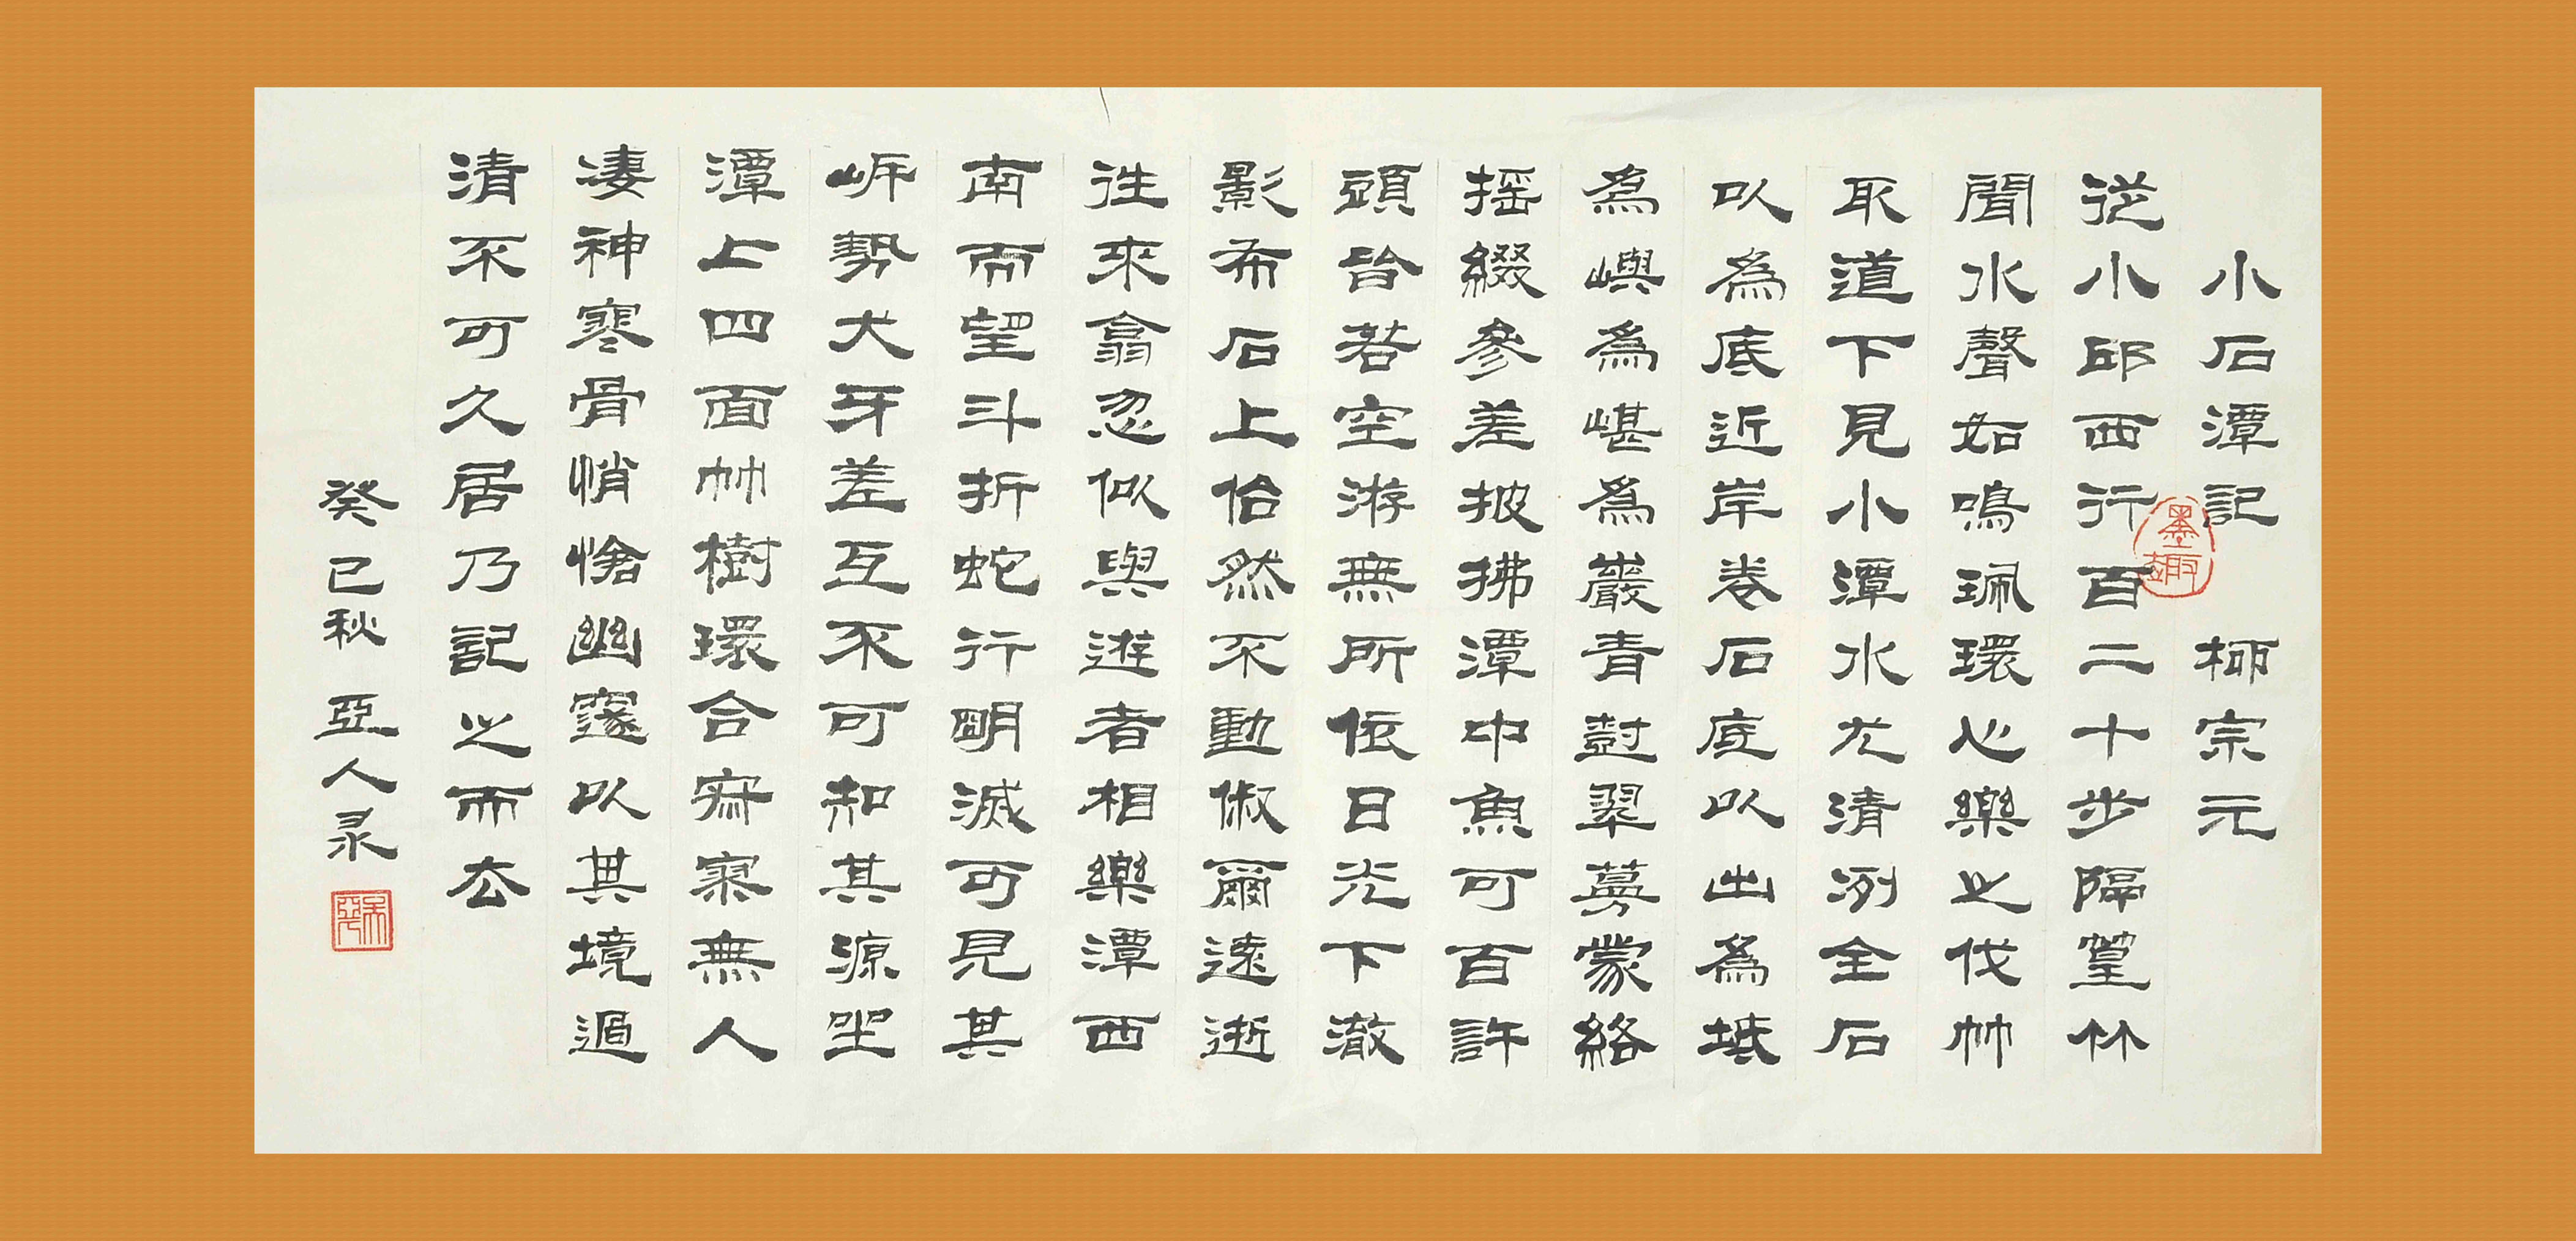 小石潭記 柳宗元
從小邱西行百二十步隔篁竹
聞水聲如鳴珮環心樂之伐竹
取道下見小潭水尤清冽全石
以為底近岸卷石底以出為坻
為嶼為嵁為巖青樹翠蔓蒙絡
搖綴參差披拂潭中魚可百許
頭皆若空游無所依日光下澈
影布石上佁然不動俶爾遠逝
往來翕忽似與遊者相樂潭西
南而望斗折蛇行明滅可見其
岸勢犬牙差互不可知其源坐
潭上四面竹樹環合寂寥無人
淒神寒骨悄愴幽邃以其境過
清不可久居乃記之而去
癸巳秋 亞人录
墨趣